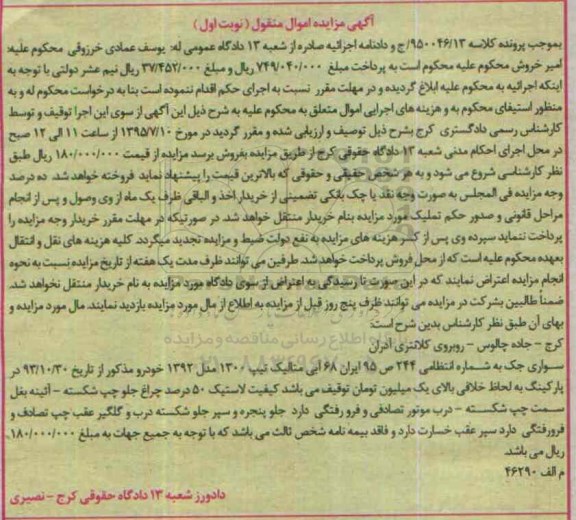 آگهی مزایده اموال منقول (نوبت اول)
بموجب پرونده کلاسه ۹۵۰۰۴۶/۱۳/ج و دادنامه اجرائیه صادره از شعبه ۱۳ دادگاه عمومی له: یوسف عمادی خرزوقی محکوم علیه:
امیر خروش محکوم علیه محکوم است به پرداخت مبلغ ۷۴۹/۰۴۰/۰۰۰ ریال و مبلغ ۳۷/۴۵۲/۰۰۰ ریال نیم عشر دولتی با توجه به
اینکه اجرائیه به محکوم علیه ابلاغ گردیده و در مهلت مقرر نسبت به اجرای حکم اقدام ننموده است بنا به درخواست محکوم له و به
منظور استیفای محکوم به و هزینه های اجرایی اموال متعلق به محکوم علیه به شرح ذیل این آگهی از سوی این اجرا توقیف و توسط
کارشناس رسمی دادگستری کرج بشرح ذیل توصیف و ارزیابی شده و مقرر گردید در مورخ ۱۳۹۵/۷/۱۰ از ساعت ۱۱ الی ۱۲ صبح
در محل اجرای احکام مدنی شعبه ۱۳ دادگاه حقوقی کرج از طریق مزایده بفروش برسد مزایده از قیمت ۱۸۰/۰۰۰/۰۰۰ ریال طبق
نظر کارشناسی شروع می شود و به هر شخص حقیقی و حقوقی که بالاترین قیمت را پیشنهاد نماید فروخته خواهد شد. ده درصد
وجه مزایده فی المجلس به صورت وجه نقد یا چک بانکی تضمینی از خریدار اخذ و الباقی ظرف یک ماه از وی وصول و پس از انجام
مراحل قانونی و صدور حکم تملیک مورد مزایده بنام خریدار منتقل خواهد شد. در صورتیکه در مهلت مقرر خریدار وجه مزایده را
پرداخت ننماید سپرده وی پس از کسر هزینه های مزایده به نفع دولت ضبط و مزایده تجدید میگردد. کلیه هزینه های نقل و انتقال
بعهده محکوم علیه است که از محل فروش پرداخت خواهد شد. طرفین می توانند ظرف مدت یک هفته از تاریخ مزایده نسبت به نحوه
انجام مزایده اعتراض نمایند که در این صورت تا رسیدگی به اعتراض از سوی دادگاه مورد مزایده به نام خریدار منتقل نخواهد شد.
ضمناً طالبین بشرکت در مزایده می توانند ظرف پنج روز قبل از مزایده به اطلاع از مال مورد مزایده بازدید نمایند. مال مورد مزایده و
بهای آن طبق نظر کارشناس بدین شرح است:
کرج - جاده چالوس - روبروی کلانتری آدران
سواری جک به شماره انتظامی ۲۴۴ ص ۹۵ ایران ۶۸ آبی متالیک تیپ ۱۳۰۰ مدل ۱۳۹۲ خودرو مذکور از تاریخ ۹۳/۱۰/۳۰ در
پارکینگ به لحاظ خلافی بالای یک میلیون تومان توقیف می باشد کیفیت لاستیک ۵۰ درصد چراغ جلو چپ شکسته - آئینه بغل
سمت چپ شکسته - درب موتور تصادفی و فرورفتگی دارد جلو پنجره و سپر جلو شکسته درب و گلگیر عقب چپ تصادف و
فرورفتگی دارد سپر عقب خسارت دارد و فاقد بیمه نامه شخص ثالث می باشد که با توجه به جمیع جهات به مبلغ ۱۸۰/۰۰۰/۰۰۰
ریال می باشد.
م الف ۴۶۲۹۰
دادورز شعبه ۱۳ دادگاه حقوقی کرج - نصیری